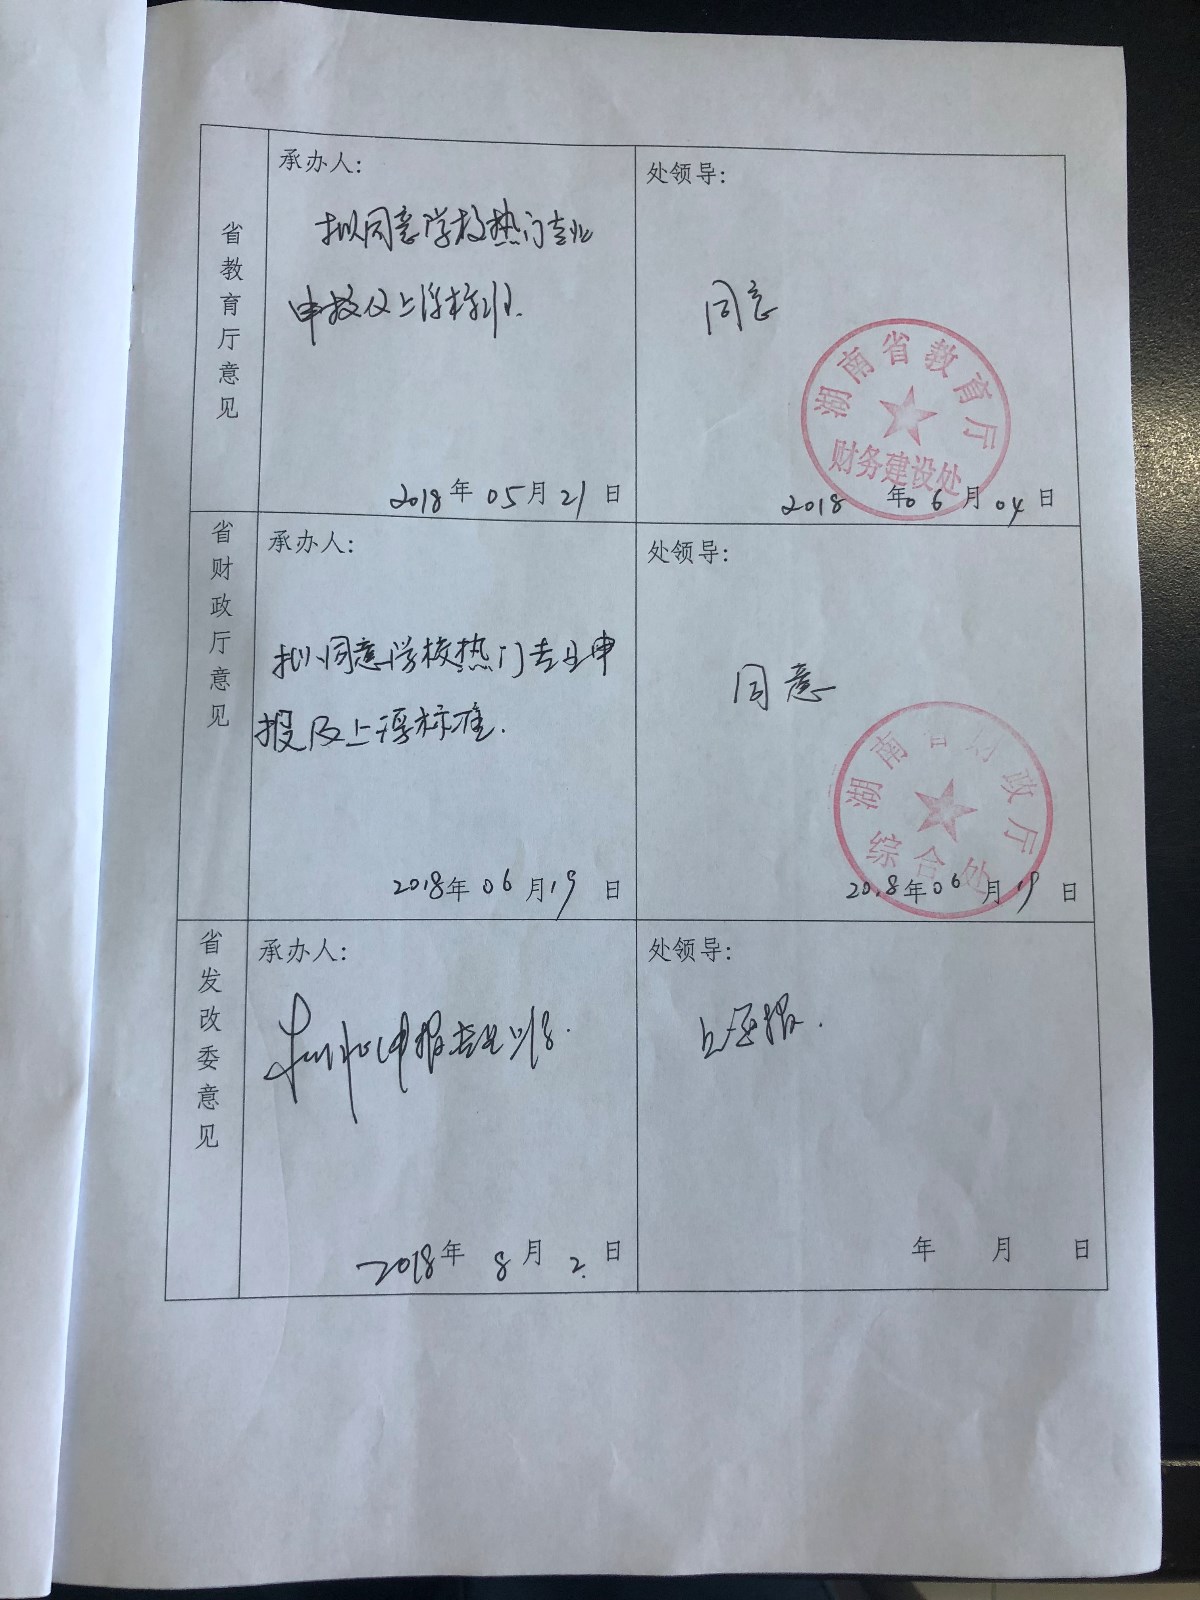 省教育厅意见
承办人：
拟同意学校热门专业
申报及上浮标准.
2018年05月21日
处领导：
同意
湖南省教育厅
财务建设处
2018年06月04日
省财政厅意见
承办人：
拟同意学校热门专业申
报及上浮标准.
2018年06月19日
处领导：
同意
湖南省财政厅
综合处
2018年06月19日
省发改委意见
承办人：
申报专业
2018年8月2日
处领导：
年 月 日